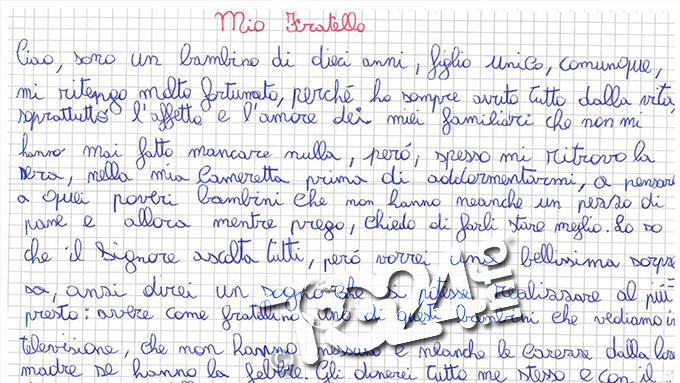 Mio Fratello
Ciao, sono un bambino di dieci anni, figlio unico, comunque,
mi ritengo molto fortunato, perché ho sempre avuto tutto dalla vita,
soprattutto l'affetto e l'amore dei miei familiari che non mi
hanno mai fatto mancare nulla, però, spesso mi ritrovo la
sera, nella mia cameretta prima di addormentarmi, a pensare
a quei poveri bambini che non hanno neanche un pezzo di
pane e allora mentre prego, chiedo di farli stare meglio. Lo so
che il Signore ascolta tutti, però vorrei una bellissima sorpre
sa, anzi direi un sogno che si potesse realizzare al più
presto: avere come fratellino uno di questi bambini che vediamo in
televisione, che non hanno nessuno e neanche le carezze dalla loro
madre se hanno la febbre. Gli darei tutto me stesso e con il